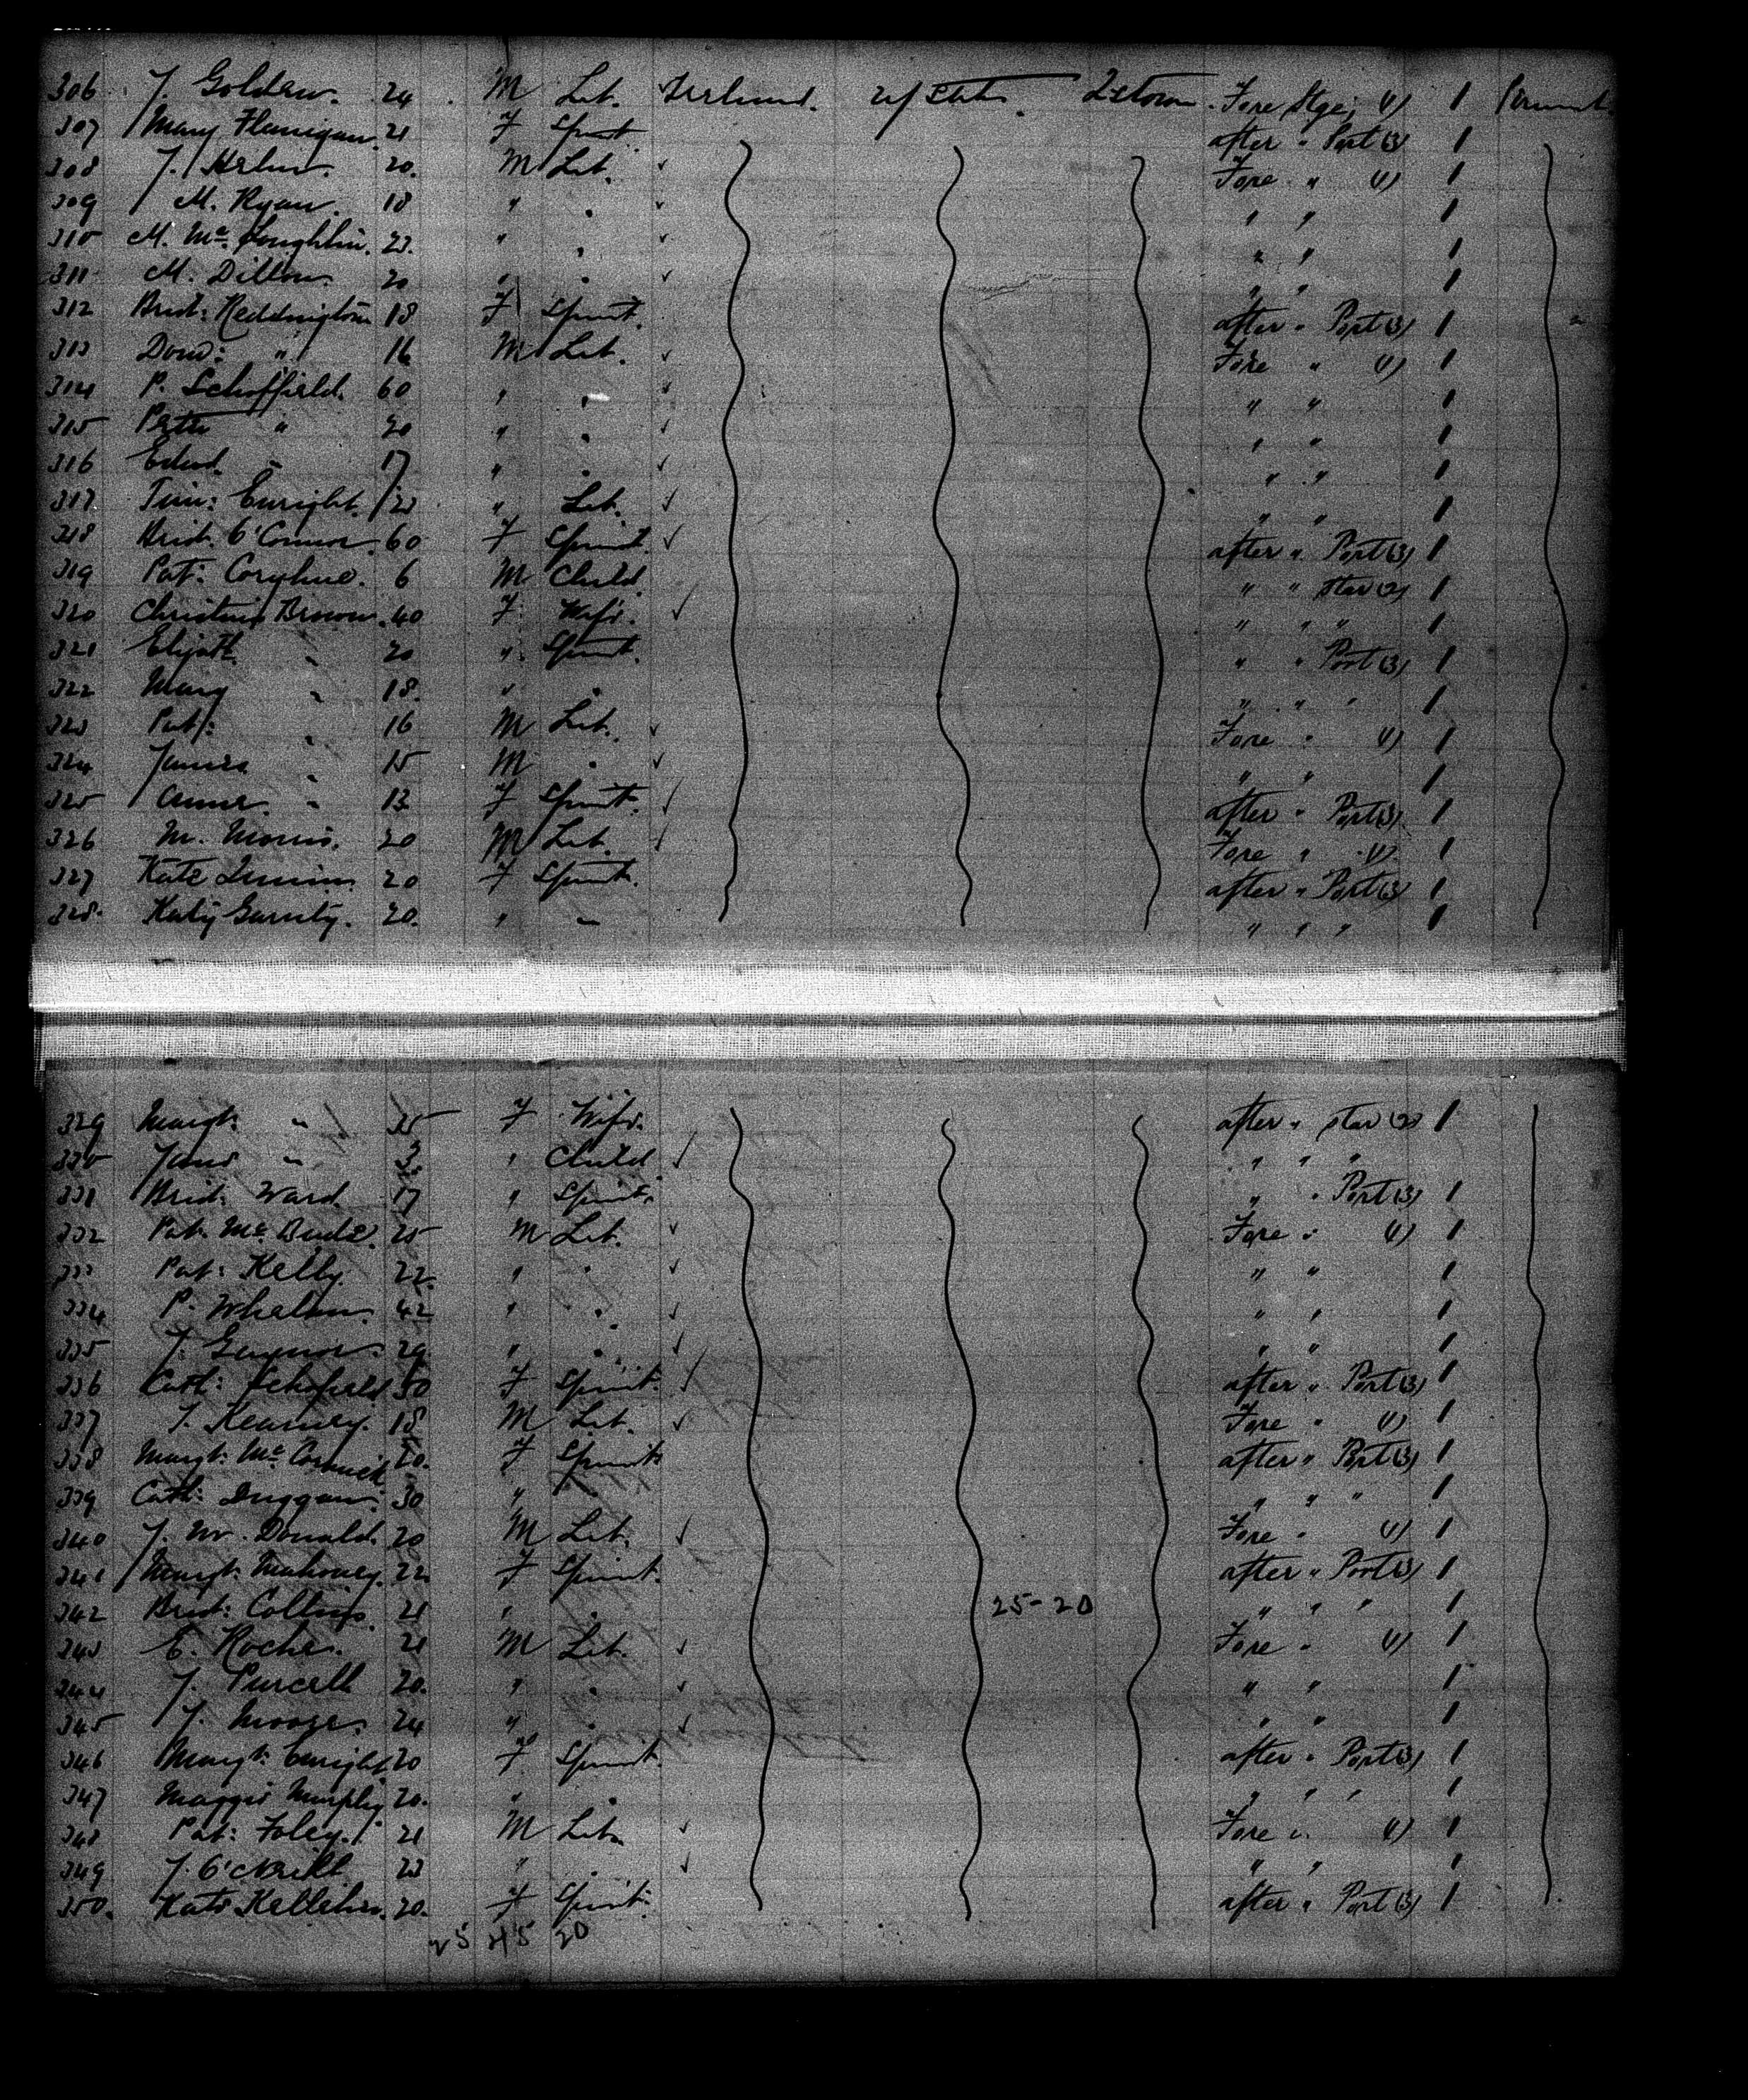 306 J. Golden. 24 M Lab. Ireland. U/States. Q.stown. Fore Stge; (1) 1 Permnt.
307 Mary Flanigan. 21 F Spinst. after " Port (3) 1
308 J. 20. M Lab. Fore " (1) 1
309 M. Ryan. 18 " " " " 1
310 M. Mc Loughlin. 23. " " " " 1
311 M. Dillon. 20 " " " " 1
312 Brid: Reddington 18 F Spinst. after " Port (3) 1
313 Dom: " 16 M Lab. Fore " (1) 1
314 P. Schoffield. 60 " " " " 1
315 " 20 " " " " 1
316 Edwd. " 17 " " " " 1
317 Tim: Enright. 23 " Lab. " " 1
318 Brid. O'Connor. 60 F Spinst. after " Port (3) 1
319 Pat: 6 M Child " " Star (2) 1
320 Brown. 40 F Wife. " " " 1
321 Elizath " 20 " Spinst. " " Port (3) 1
322 Mary " 18. " " " " " 1
323 Pat: " 16 M Lab. Fore " (1) 1
324 James " 15 M " " " 1
325 Anne " 13 F Spinst. after " Port (3) 1
326 M. Morris. 20 M Lab. Fore " (1) 1
327 Kate 20 F Spinst. after " Port (3) 1
328. Katy Garrity. 20. " " " " " 1
329 Margt: " 35 F Wife. after " Star (2) 1
330 " 3. " Child " " "
331 Brid: Ward. 17 " Spinst. " " Port (3) 1
332 Pat. Mc 25 M Lab. Fore " (1) 1
333 Pat: Kelly. 22. " " " " 1
334 P. Whelan. 42 " " " " 1
335 J. Gaynor. 29. " " " " 1
336 Cath: Schofield 50 F Spinst. after " Port (3) 1
337 J. Kearney. 18 M Lab. Fore " (1) 1
338 Margt: Mc Cormick 20. F Spinst. after " Port (3) 1
339 Cath: Duggan. 30 " " " " " 1
340 J. M. Donald. 20 M Lab. Fore " (1) 1
341 Margt. Mahoney. 22. F Spinst. after " Port (3) 1
342 Brid: Collins. 21 " " 25-20 " " " 1
343 E. Roche. 21 M Lab. Fore " (1) 1
344 J. Purcell 20. " " " " 1
345 J. Moore. 24 " " " " 1
346 Margt. Enright 20 F Spinst. after " Port (3) 1
347 Maggie Murphy 20. " " " " " 1
348 Pat: Foley. 21 M Lab. Fore " (1) 1
349 J. O'Neill 23 " " " " 1
350. Kate Kelleher. 20. F Spinst. after " Port (3) 1
25 45 20